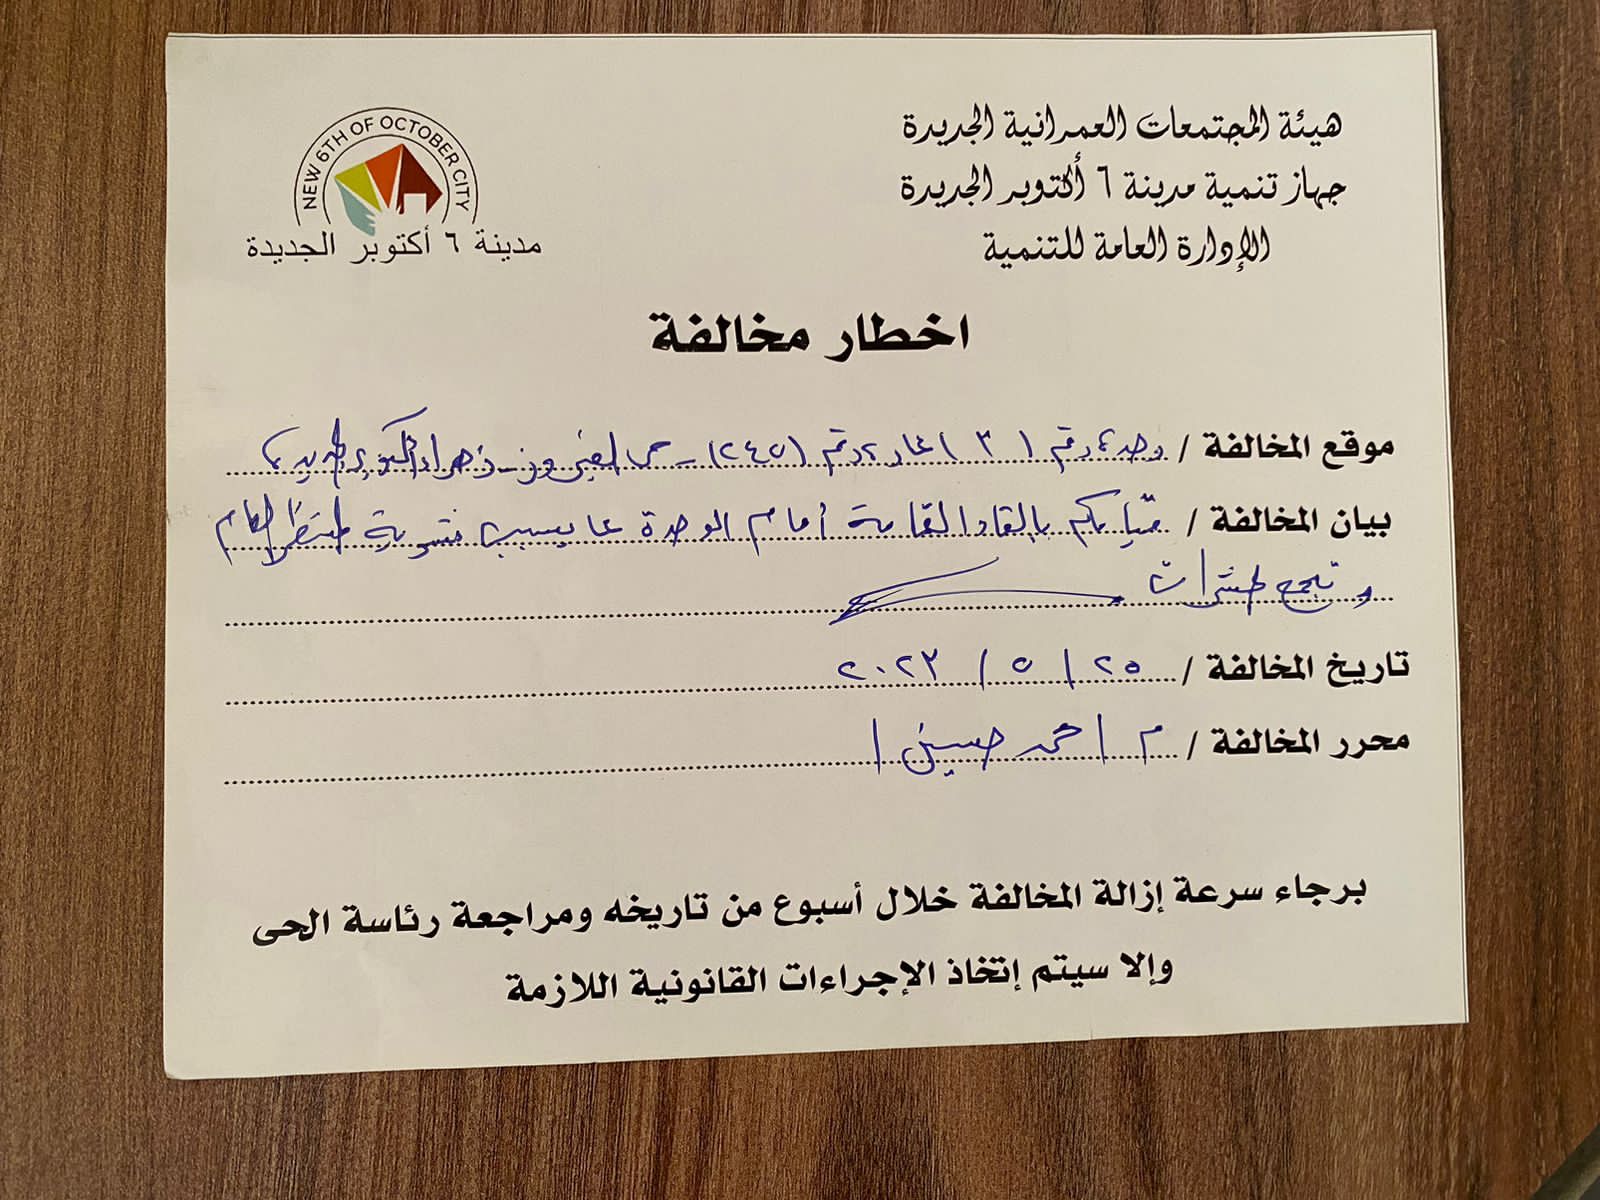 هيئة المجتمعات العمرانية الجديدة
جهاز تنمية مدينة ٦ أكتوبر الجديدة
الإدارة العامة للتنمية
NEW 6TH OF OCTOBER CITY
مدينة ٦ أكتوبر الجديدة
اخطار مخالفة
موقع المخالفة / وحدة رقم (٣) عمارة رقم (٢٤٥) - حى الفيروز - زهراء أكتوبر الجديدة
بيان المخالفة / قيامكم بإلقاء القمامة أمام الوحدة مما يسبب تشوية المنظر العام
وتجمع حشرات
تاريخ المخالفة / ٢٥ / ٥ / ٢٠٢٣
محرر المخالفة / م / احمد حسين /
برجاء سرعة إزالة المخالفة خلال أسبوع من تاريخه ومراجعة رئاسة الحى
وإلا سيتم إتخاذ الإجراءات القانونية اللازمة